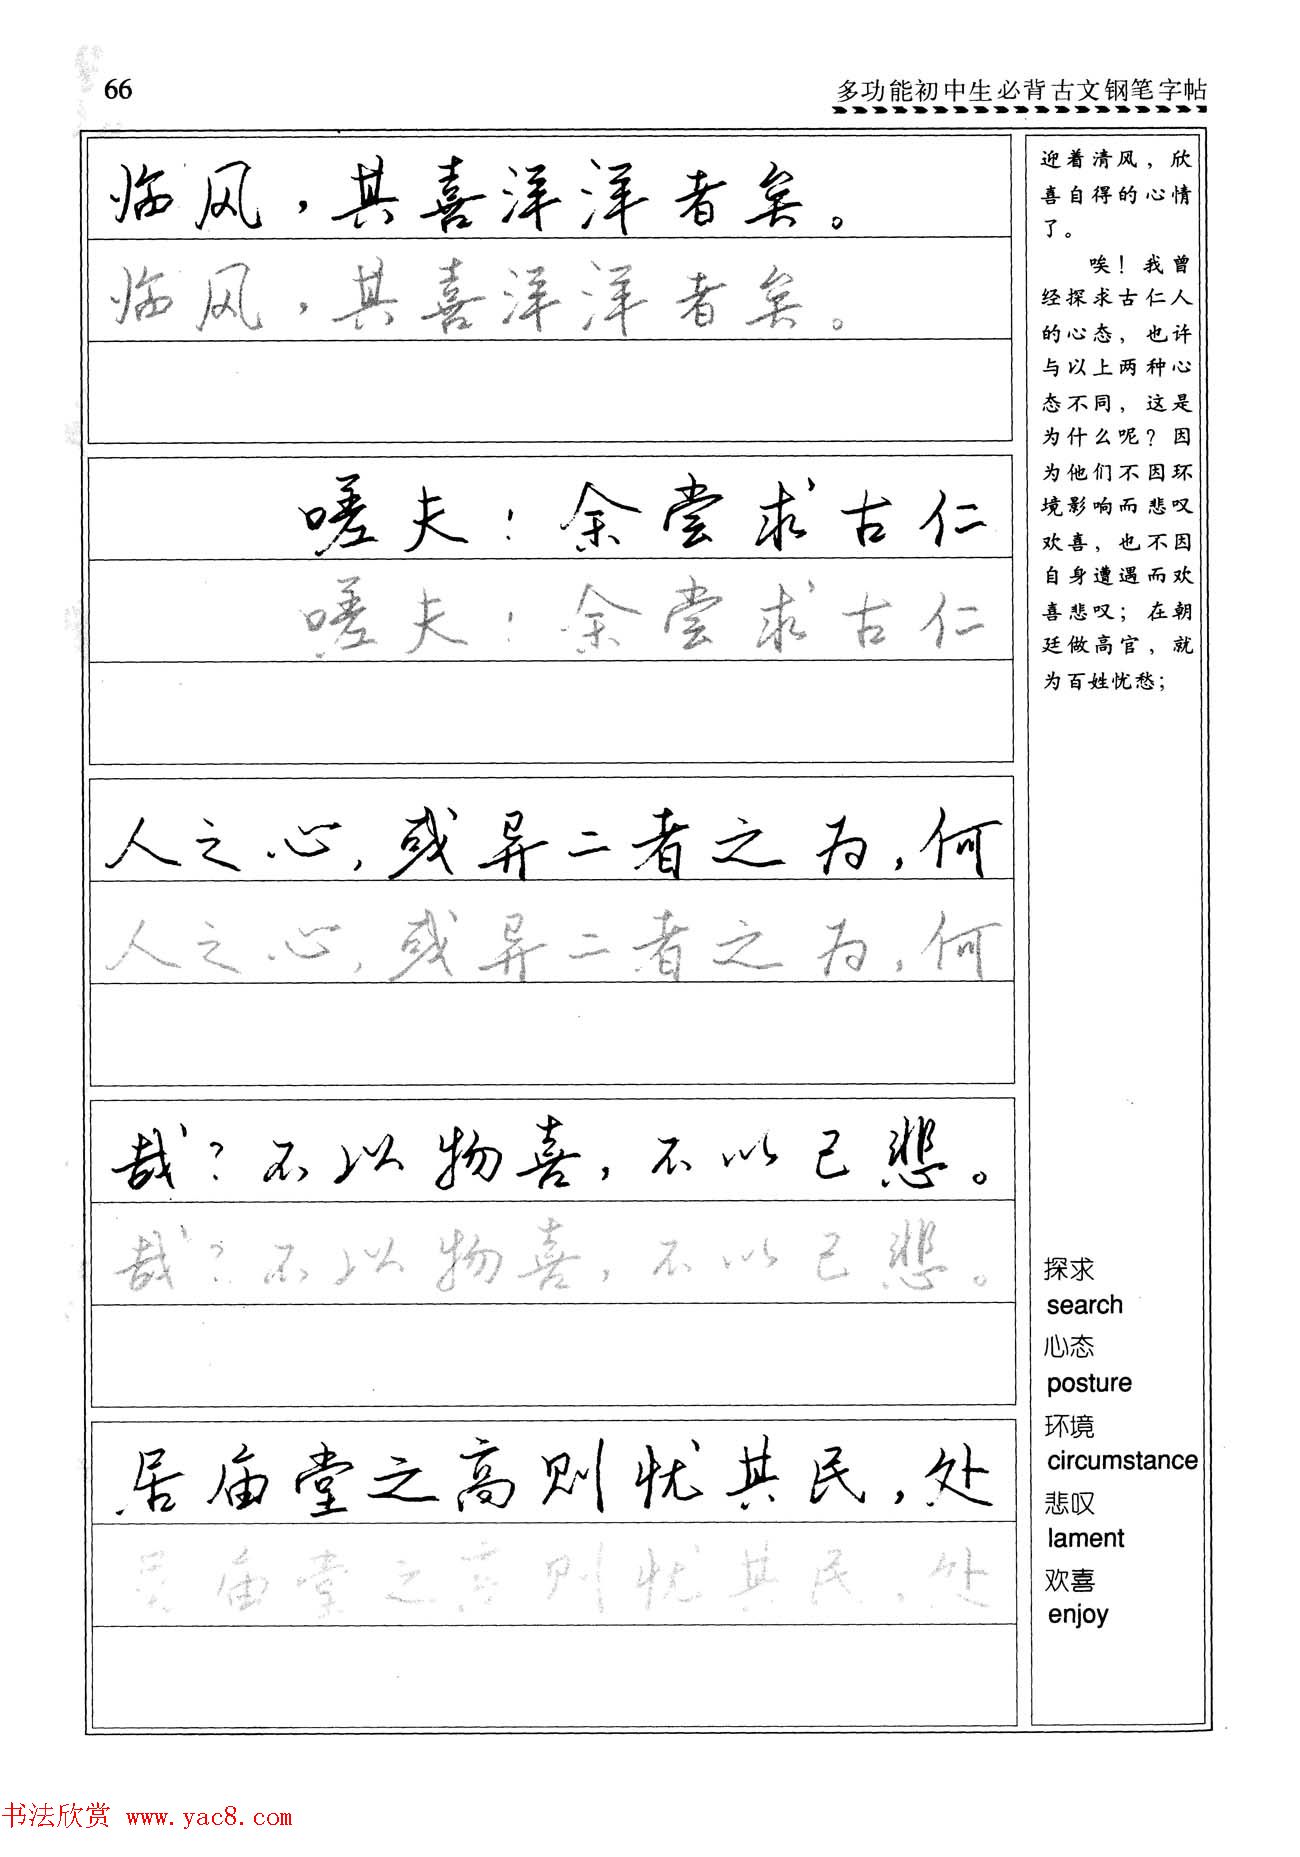 66
多功能初中生必背古文钢笔字帖
临风，其喜洋洋者矣。
临风，其喜洋洋者矣。
嗟夫！余尝求古仁
嗟夫！余尝求古仁
人之心，或异二者之为，何
人之心，或异二者之为，何
哉？不以物喜，不以己悲。
哉？不以物喜，不以己悲。
居庙堂之高则忧其民，处
居庙堂之高则忧其民，处
迎着清风，欣
喜自得的心情
了。
唉！我曾
经探求古仁人
的心态，也许
与以上两种心
态不同，这是
为什么呢？因
为他们不因环
境影响而悲叹
欢喜，也不因
自身遭遇而欢
喜悲叹；在朝
廷做高官，就
为百姓忧愁；
探求
search
心态
posture
环境
circumstance
悲叹
lament
欢喜
enjoy
书法欣赏 www.yac8.com